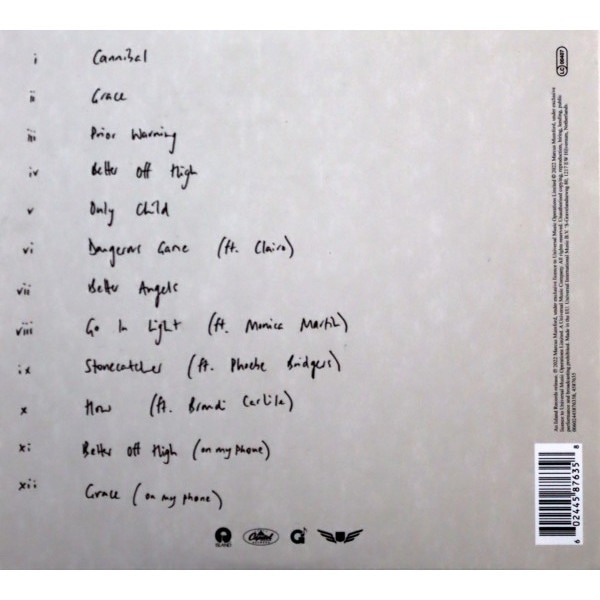 i Cannibal
ii Grace
iii Prior Warning
iv Better Off High
v Only Child
vi Dangerous Game (ft. Clairo)
vii Better Angels
viii Go In Light (ft. Monica Martin)
ix Stonecatcher (ft. Phoebe Bridgers)
x How (ft. Brandi Carlile)
xi Better Off High (on my phone)
xii Grace (on my phone)
ISLAND
Capitol
LC 00407
An Island Records release. ℗ 2022 Marcus Mumford, under exclusive
licence to Universal Music Operations Limited © 2022 Marcus Mumford, under exclusive
licence to Universal Music Operations Limited. A Universal Music Company. All rights reserved. Unauthorised copying, reproduction, hiring, lending, public
performance and broadcasting prohibited. Made in the EU. Universal International Music B.V.
6 02445 87635 8